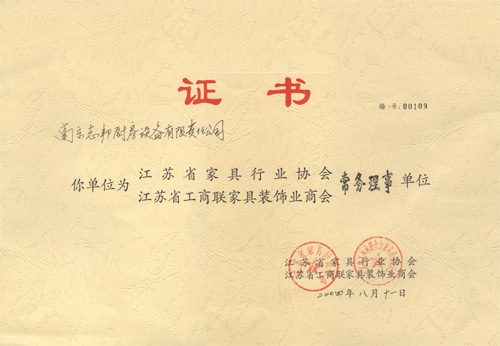 证书
编号:00109
南京志邦厨房设备有限责任公司
你单位为 江苏省家具行业协会
江苏省工商联家具装饰业商会 常务理事 单位
江苏省家具行业协会
江苏省工商联家具装饰业商会
二00四年八月十一日